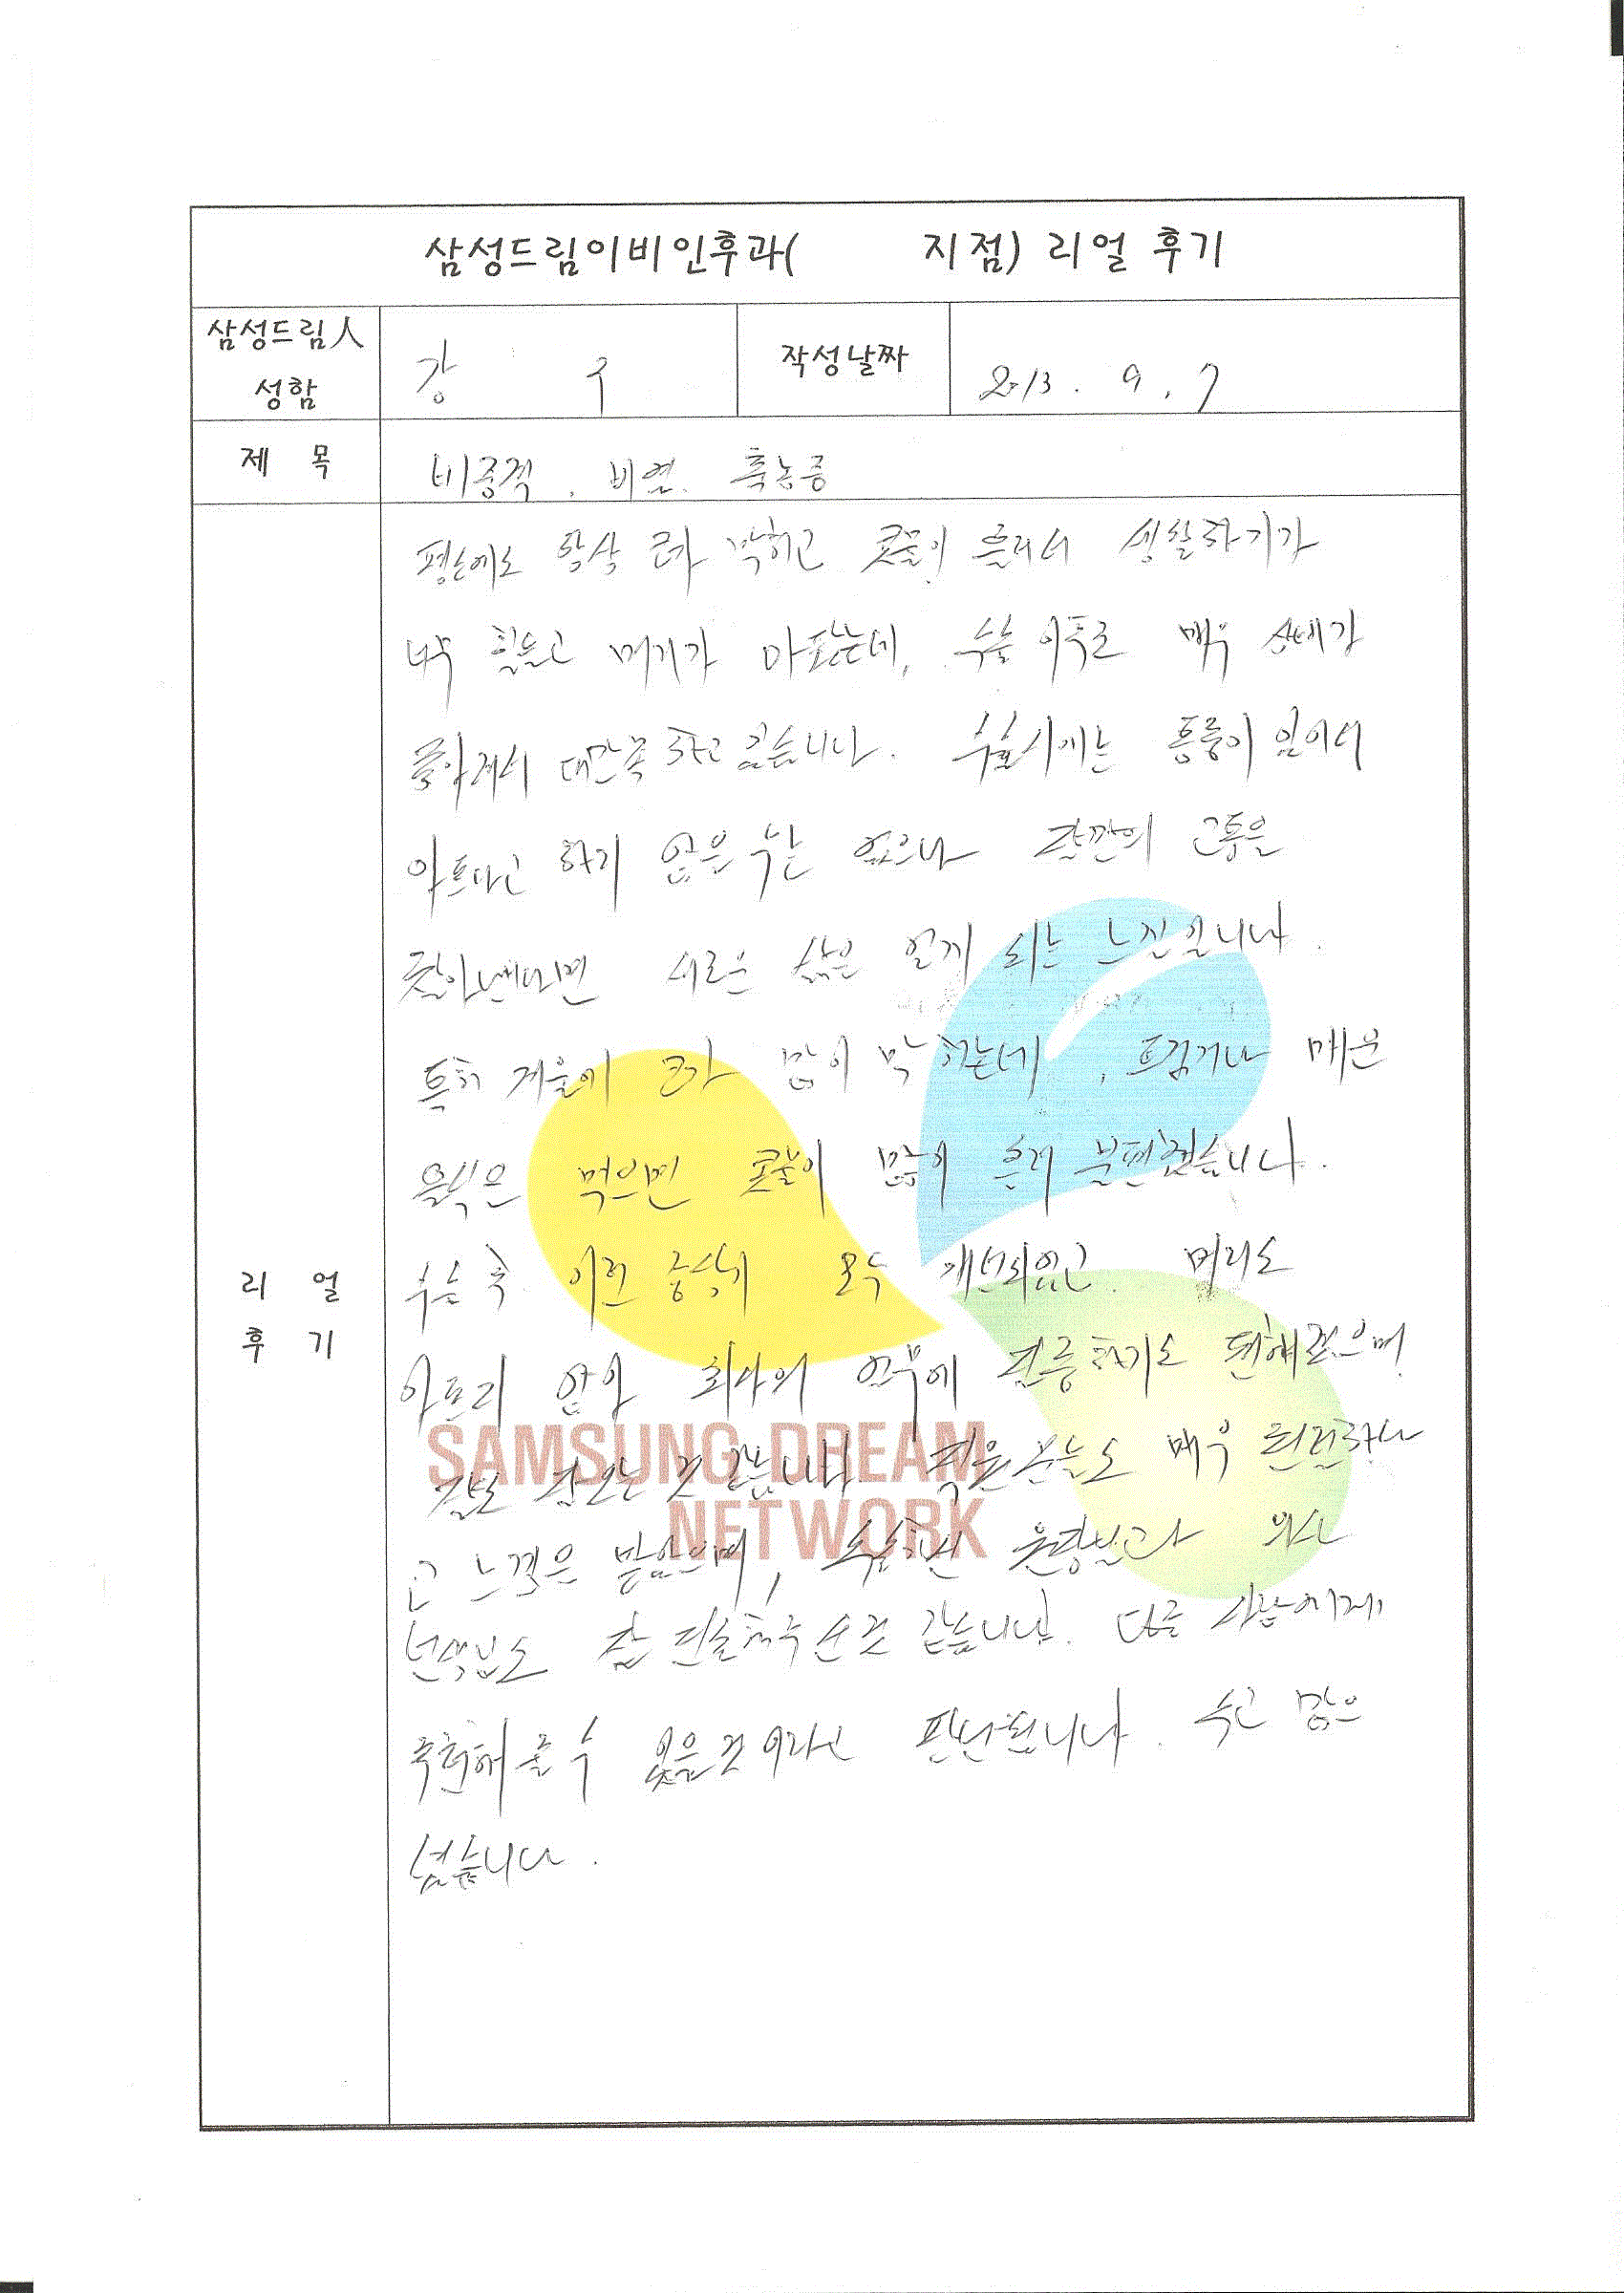 삼성드림이비인후과(          지점) 리얼 후기
삼성드림人
성함
강 수
작성날짜
2013. 9. 7
제 목
비중격. 비염. 축농증
평소에도 항상 코가 막히고 콧물이 흘러서 생활하기가
너무 힘들고 머리가 아팠는데, 수술 이후로 매우 상태가
좋아져서 대만족하고 있습니다. 수술시에는 통증이 있어서
아프다고 하지 않을 수는 없으나 잠깐의 고통을
참아낸다면 새로운 삶을 얻게 되는 느낌입니다.
특히 겨울에 코가 많이 막히는데, 뜨겁거나 매운
음식을 먹으면 콧물이 많이 흘러 불편했습니다.
수술 후 이런 증상이 모두 개선되었고 머리도
아프지 않아 회사의 업무에 집중하기도 편해졌으며
잠도 잘오는 것 같습니다. 직원분들도 매우 친절하다
고 느낌을 받았으며, 수술하신 원장님과 의사
선생님도 잘 진술해주신것 같습니다. 다른 사람에게
추천해줄 수 있을것이라고 판단됩니다. 수고 많으
셨습니다.
리 얼
후 기
SAMSUNG DREAM
NETWORK